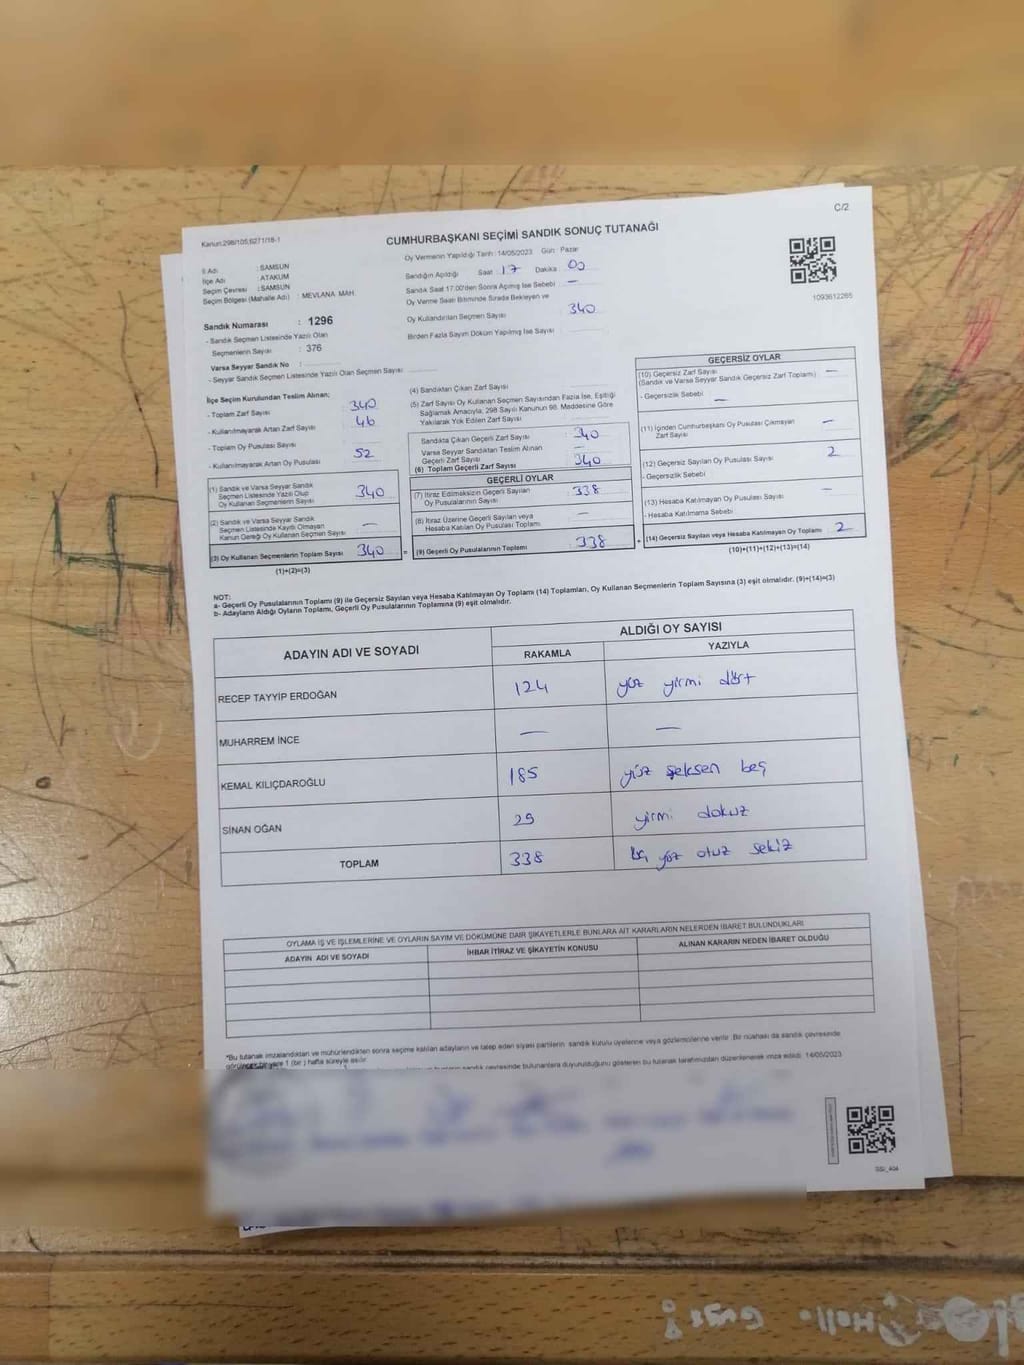 C/2
Kanun:298/105;6271/18-1
CUMHURBAŞKANI SEÇİMİ SANDIK SONUÇ TUTANAĞI
İl Adı : SAMSUN
İlçe Adı : ATAKUM
Seçim Çevresi : SAMSUN
Seçim Bölgesi (Mahalle Adı) : MEVLANA MAH.
Sandık Numarası : 1296
- Sandık Seçmen Listesinde Yazılı Olan
Seçmenlerin Sayısı : 376
Varsa Seyyar Sandık No :
- Seyyar Sandık Seçmen Listesinde Yazılı Olan Seçmen Sayısı
Oy Vermenin Yapıldığı Tarih : 14/05/2023 Gün : Pazar
Sandığın Açıldığı Saat 17 Dakika 00
Sandık Saat 17.00'den Sonra Açılmış İse Sebebi —
Oy Verme Saati Bitiminde Sırada Bekleyen ve
Oy Kullandırılan Seçmen Sayısı 340
Birden Fazla Sayım Döküm Yapılmış İse Sayısı
1093612265
İlçe Seçim Kurulundan Teslim Alınan:
- Toplam Zarf Sayısı 340
- Kullanılmayarak Artan Zarf Sayısı 46
- Toplam Oy Pusulası Sayısı
- Kullanılmayarak Artan Oy Pusulası 52
(1) Sandık ve Varsa Seyyar Sandık
Seçmen Listesinde Yazılı Olup
Oy Kullanan Seçmenlerin Sayısı 340
(2) Sandık ve Varsa Seyyar Sandık
Seçmen Listesinde Kayıtlı Olmayan
Kanun Gereği Oy Kullanan Seçmen Sayısı —
(3) Oy Kullanan Seçmenlerin Toplam Sayısı 340 =
(1)+(2)=(3)
(4) Sandıktan Çıkan Zarf Sayısı
(5) Zarf Sayısı Oy Kullanan Seçmen Sayısından Fazla İse, Eşitliği
Sağlamak Amacıyla, 298 Sayılı Kanunun 98. Maddesine Göre
Yakılarak Yok Edilen Zarf Sayısı
Sandıkta Çıkan Geçerli Zarf Sayısı 340
Varsa Seyyar Sandıktan Teslim Alınan
Geçerli Zarf Sayısı —
(6) Toplam Geçerli Zarf Sayısı 340
GEÇERLİ OYLAR
(7) İtiraz Edilmeksizin Geçerli Sayılan
Oy Pusulalarının Sayısı 338
(8) İtiraz Üzerine Geçerli Sayılan veya
Hesaba Katılan Oy Pusulası Toplamı —
(9) Geçerli Oy Pusulalarının Toplamı 338 +
GEÇERSİZ OYLAR
(10) Geçersiz Zarf Sayısı
(Sandık ve Varsa Seyyar Sandık Geçersiz Zarf Toplamı) —
- Geçersizlik Sebebi —
(11) İçinden Cumhurbaşkanı Oy Pusulası Çıkmayan
Zarf Sayısı —
(12) Geçersiz Sayılan Oy Pusulası Sayısı 2
- Geçersizlik Sebebi
(13) Hesaba Katılmayan Oy Pusulası Sayısı —
- Hesaba Katılmama Sebebi
(14) Geçersiz Sayılan veya Hesaba Katılmayan Oy Toplamı 2
(10)+(11)+(12)+(13)=(14)
NOT:
a- Geçerli Oy Pusulalarının Toplamı (9) ile Geçersiz Sayılan veya Hesaba Katılmayan Oy Toplamı (14) Toplamları, Oy Kullanan Seçmenlerin Toplam Sayısına (3) eşit olmalıdır. (9)+(14)=(3)
b- Adayların Aldığı Oyların Toplamı, Geçerli Oy Pusulalarının Toplamına (9) eşit olmalıdır.
ADAYIN ADI VE SOYADI
ALDIĞI OY SAYISI
RAKAMLA YAZIYLA
RECEP TAYYİP ERDOĞAN 124 yüz yirmi dört
MUHARREM İNCE — —
KEMAL KILIÇDAROĞLU 185 yüz seksen beş
SİNAN OĞAN 29 yirmi dokuz
TOPLAM 338 üç yüz otuz sekiz
OYLAMA İŞ VE İŞLEMLERİNE VE OYLARIN SAYIM VE DÖKÜMÜNE DAİR ŞİKAYETLERLE BUNLARA AİT KARARLARIN NELERDEN İBARET BULUNDUKLARI
ADAYIN ADI VE SOYADI İHBAR İTİRAZ VE ŞİKAYETİN KONUSU ALINAN KARARIN NEDEN İBARET OLDUĞU
*Bu tutanak imzalandıktan ve mühürlendikten sonra seçime katılan adayların ve talep eden siyasi partilerin sandık kurulu üyelerine veya gözlemcilerine verilir. Bir nüshası da sandık çevresinde
görünen bir yere 1 (bir) hafta süreyle asılır.
sandık çevresinde bulunanlara duyurulduğunu gösteren bu tutanak tarafımızdan düzenlenerek imza edildi. 14/05/2023
SSİ_404
Hello Guys!